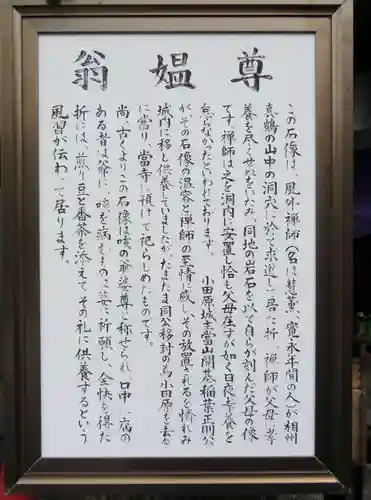 翁媼尊
この石像は、風外禅師(名は慧薫、寛永年間の人)が相州
真鶴の山中の洞穴に於て求道し居た折、禅師が父母に孝
養を尽くせぬをいたみ、同地の岩石を以て自らが刻んだ父母の像
です。禅師は之を洞内に安置し恰も父母在すが如く日夜孝養を
怠らなかったといわれております。 小田原城主當山開基稲葉正則公
がその石像の温容と禅師の至情に感じその放置されるを憐れみ
城内に移し供養していましたが、たまたま同公移封の為小田原を去る
に當り、當寺に預けて祀らしめたものです。
尚、古くよりこの石像は咳の爺婆尊と称せられ、口中に病の
ある者は爺に、咳を病むものは婆に祈願し、全快を得た
折には、煎り豆と番茶を添えてその礼に供養するという
風習が伝わって居ります。